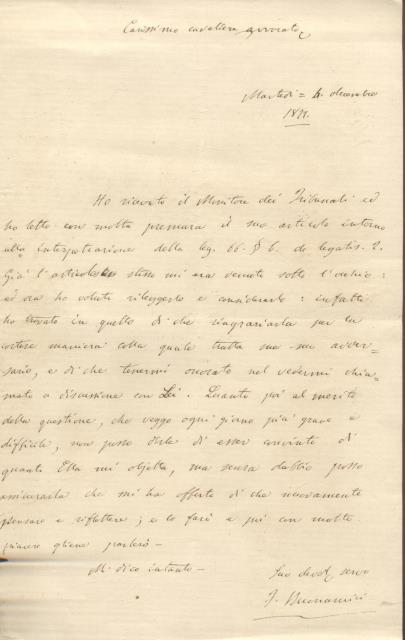 Carissimo cavaliere avvocato,
Martedì = 4. decembre
1877.
Ho ricevuto il Monitore dei Tribunali ed
ho letto con molta premura il suo articolo intorno
alla interpetrazione della leg. 66. § 6. de legatis. 2.
Già l'articolo stesso mi era venuto sotto l'occhio:
ed ora ho voluto rileggerlo e considerarlo: infatti
ho trovato in quello di che ringraziarla per la
cortese maniera colla quale tratta un suo avver-
sario, e di che tenermi onorato nel vedermi chia-
mato a discussione con Lei. Quanto poi al merito
della questione, che veggo ogni giorno più grave e
difficile, non posso dirle di esser convinto di
quanto Ella mi objetta, ma senza dubbio posso
assicurarla che mi ha offerto di che nuovamente
pensare e riflettere; e lo farò e poi con molto
piacere gliene parlerò —
Mi dico intanto —
Suo devot. servo
F. Buonamici